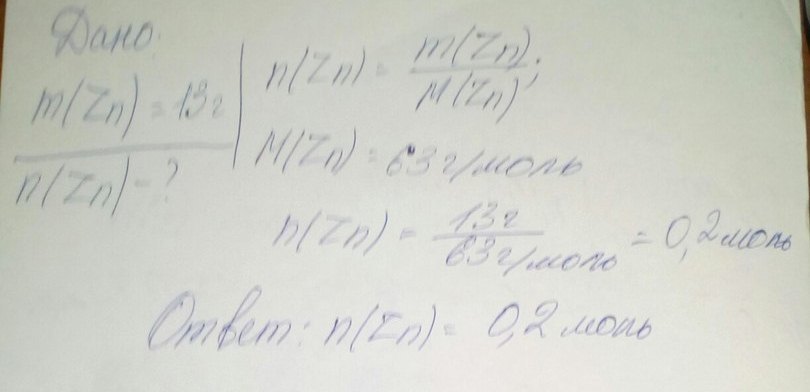 Дано:
m(Zn) = 13г
n(Zn) - ?
n(Zn) = m(Zn)/M(Zn);
M(Zn) = 63 г/моль
n(Zn) = 13г/63г/моль = 0,2 моль
Ответ: n(Zn) = 0,2 моль